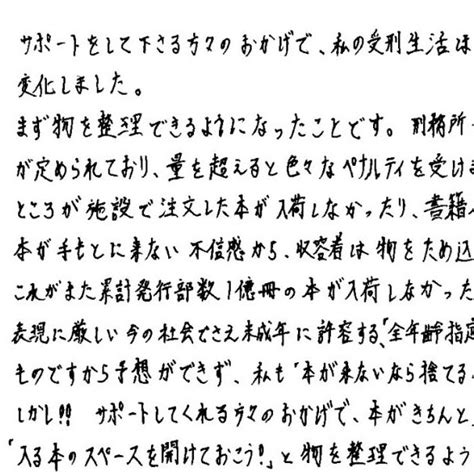 サポートをして下さる方々のおかげで、私の受刑生活は
変化しました。
まず物を整理できるようになったことです。刑務所
が定められており、量を超えると色々なペナルティを受け
ところが施設で注文した本が入荷しなかったり、書籍
本が手もとに来ない不信感から、収容者は物をため込
これがまた累計発行部数1億冊の本が入荷しなかった
表現に厳しい今の社会でさえ未成年に許容する、「全年齢指定
ものですから予想ができず、私も「本が来ないなら捨てる
しかし!! サポートしてくれる方々のおかげで、本がきちんと
「入る本のスペースを開けておこう!」と物を整理できるよう